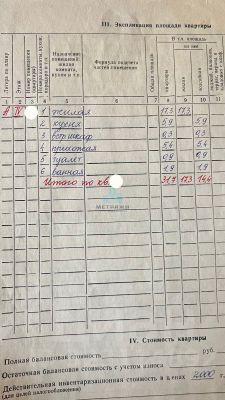 III. Экспликация площади квартиры
Литера по плану
Этаж
Назначение помещений: жилая комната, кухня и т.п.
Формула подсчета частей помещений
Общая площадь
В т.ч. площадь
из нее
жилая
1 2 3 4 5 6 7 8 9 10 11
А IV 1 жилая 17,3 17,3
2 кухня 5,9 5,9
3 встр.шкаф 0,3 0,3
4 прихожая 5,4 5,4
5 туалет 0,9 0,9
6 ванная 1,9 1,9
Итого по кв. 31,7 17,3 14,4
МЕТРАЖИ
IV. Стоимость квартиры
Полная балансовая стоимость руб.
Остаточная балансовая стоимость с учетом износа
Действительная инвентаризационная стоимость в ценах 2000 г.
(для целей налогообложения)